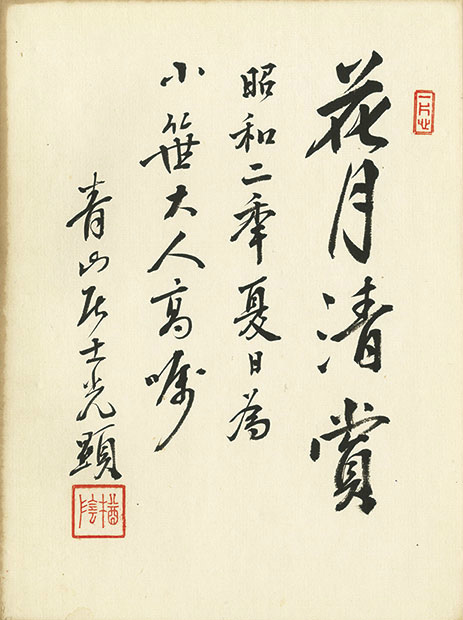 一片心
花月清賞
昭和二秊夏日為
小笹大人高嘱
青山居士光顕